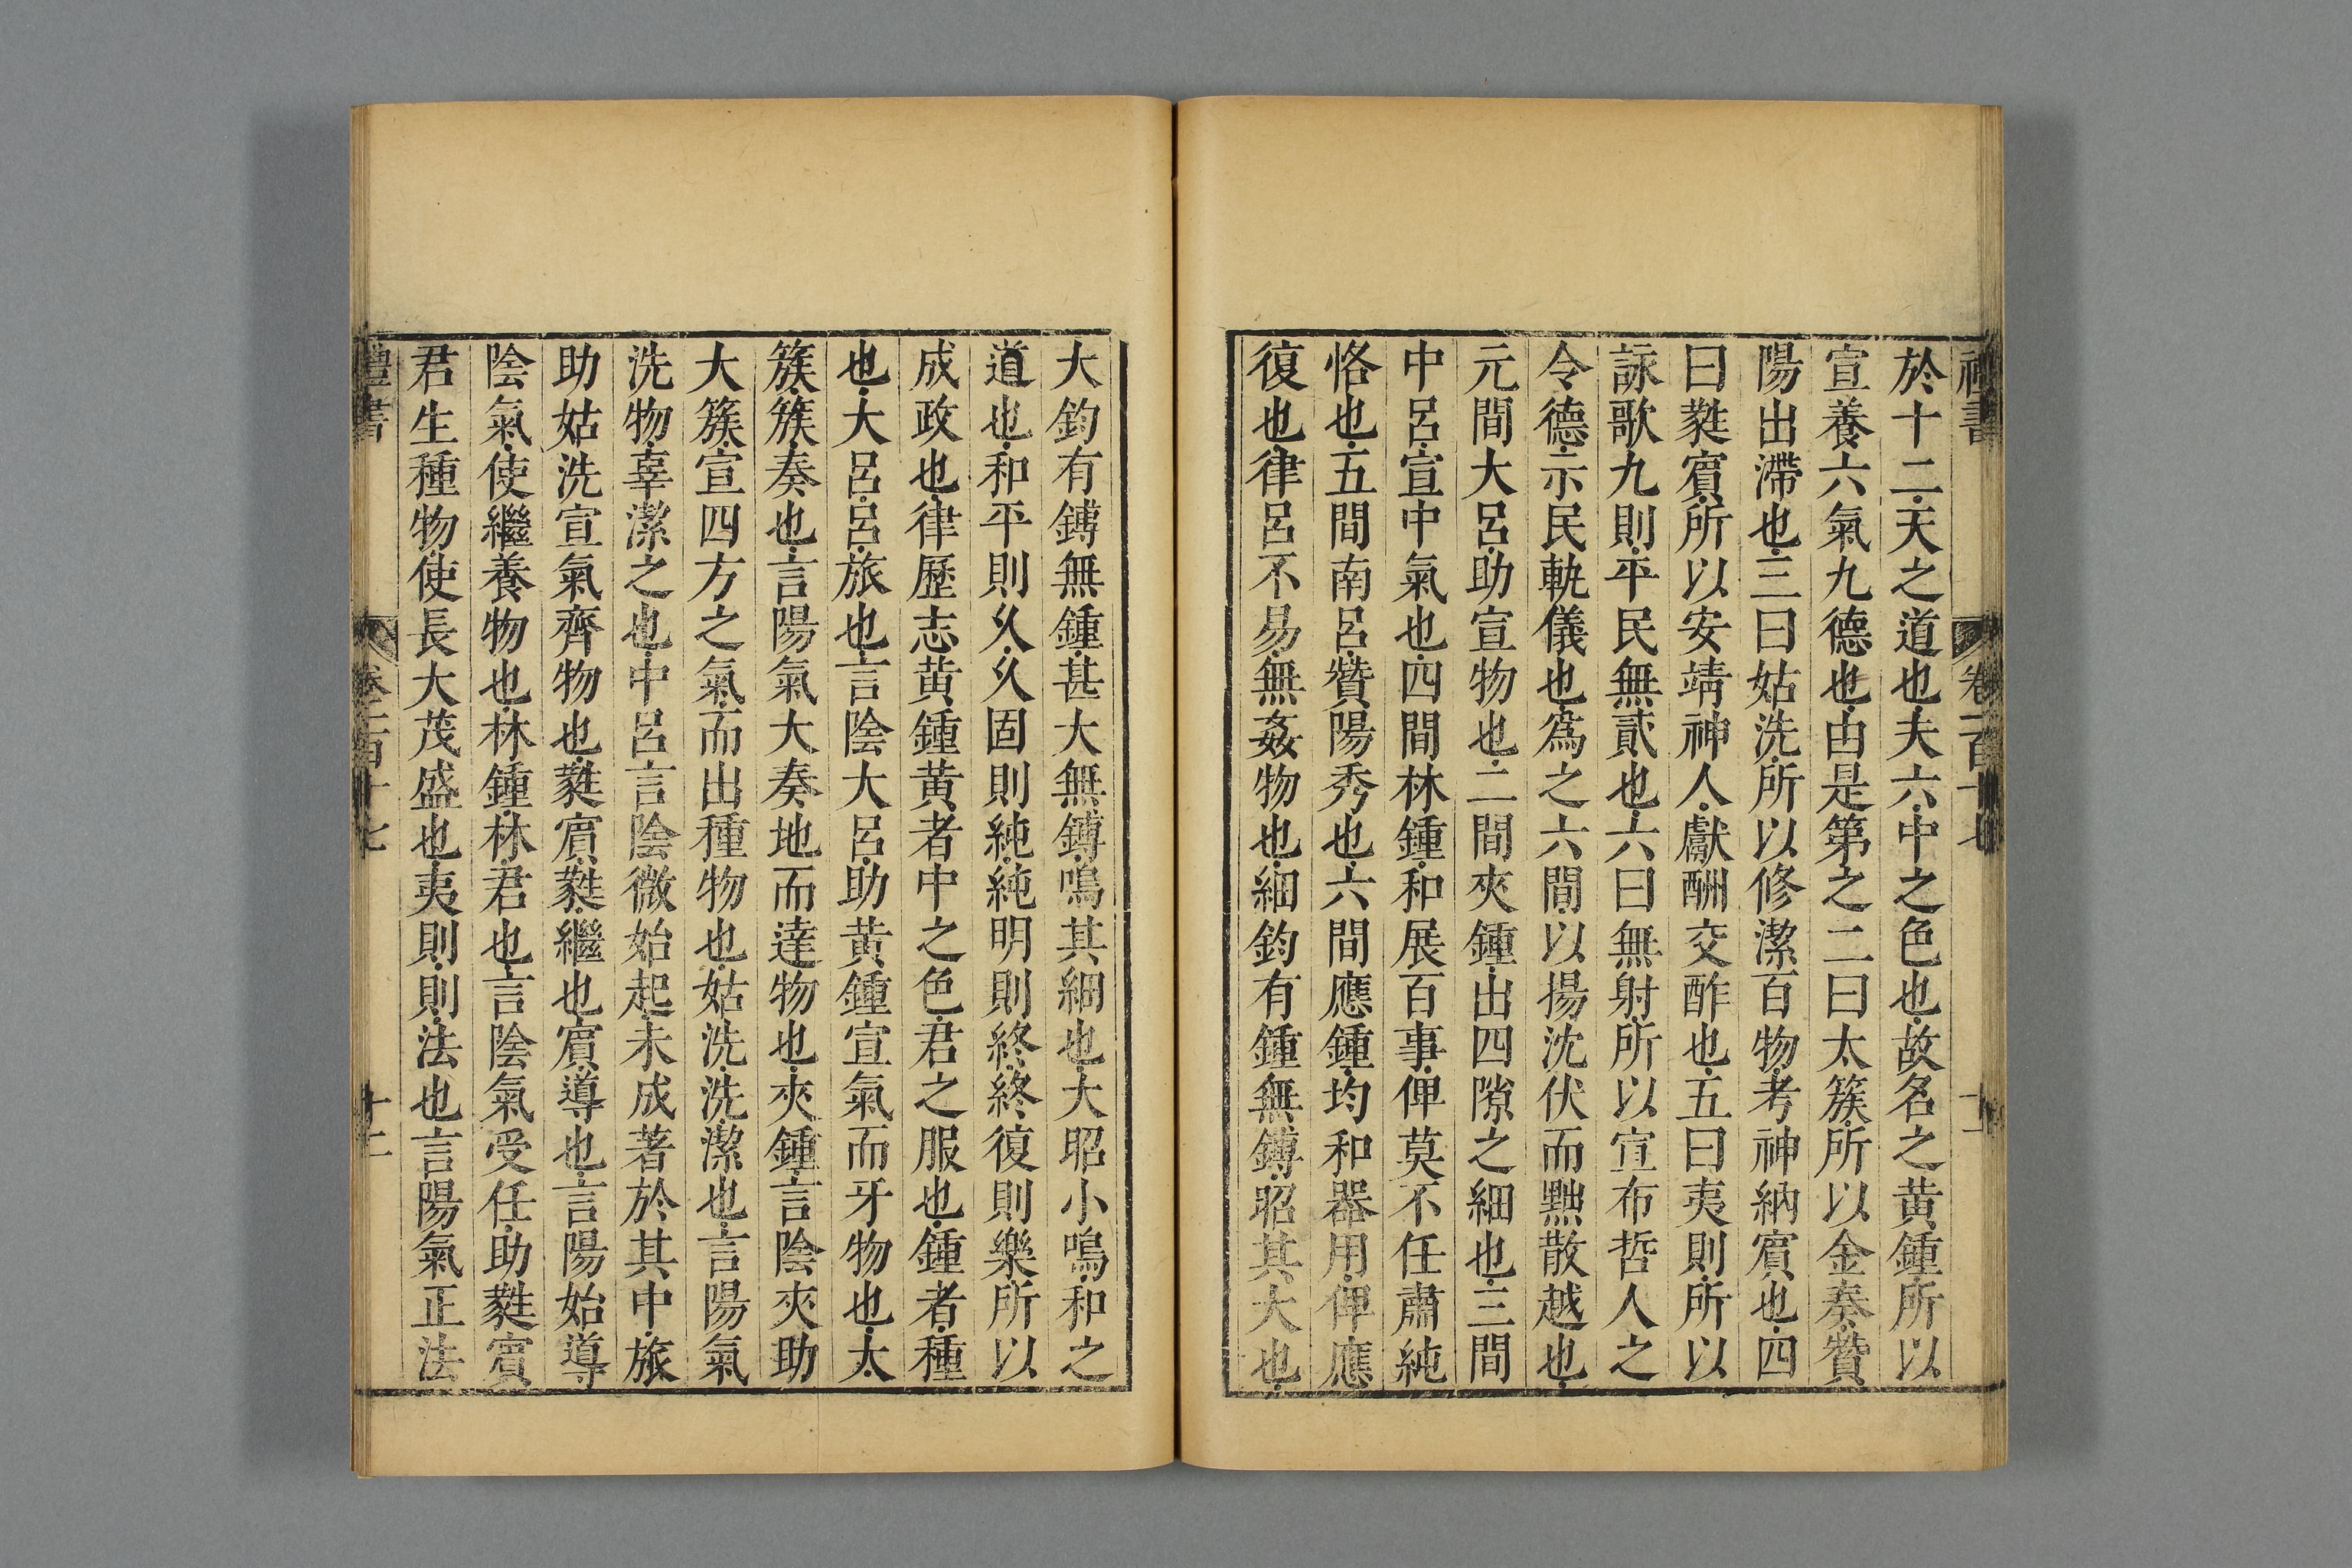 於十二天之道也夫六中之色也故名之黄鍾所以
宣養六氣九德也由是第之二曰太簇所以金奏贊
陽出滯也三曰姑洗所以修潔百物考神納賔也四
曰蕤賔所以安靖神人獻酬交酢也五曰夷則所以
詠歌九則平民無貳也六曰無射所以宣布哲人之
令德示民軌儀也爲之六間以揚沈伏而黜散越也
元間大呂助宣物也二間夾鍾出四隙之細也三間
中呂宣中氣也四間林鍾和展百事俾莫不任肅純
恪也五間南呂贊陽秀也六間應鍾均和器用俾應
復也律呂不易無姦物也細鈞有鍾無鎛昭其大也
大鈞有鎛無鍾甚大無鎛鳴其細也大昭小鳴和之
道也和平則久久固則純純明則終終復則樂所以
成政也律歷志黄鍾黄者中之色君之服也鍾者種
也大呂呂旅也言陰大呂助黄鍾宣氣而牙物也太
簇簇奏也言陽氣大奏地而達物也夾鍾言陰夾助
大簇宣四方之氣而出種物也姑洗洗潔也言陽氣
洗物辜潔之也中呂言陰微始起未成著於其中旅
助姑洗宣氣齊物也蕤賔蕤繼也賔導也言陽始導
陰氣使繼養物也林鍾林君也言陰氣受任助蕤賔
君生種物使長大茂盛也夷則則法也言陽氣正法
禮書 卷一百十七 十二